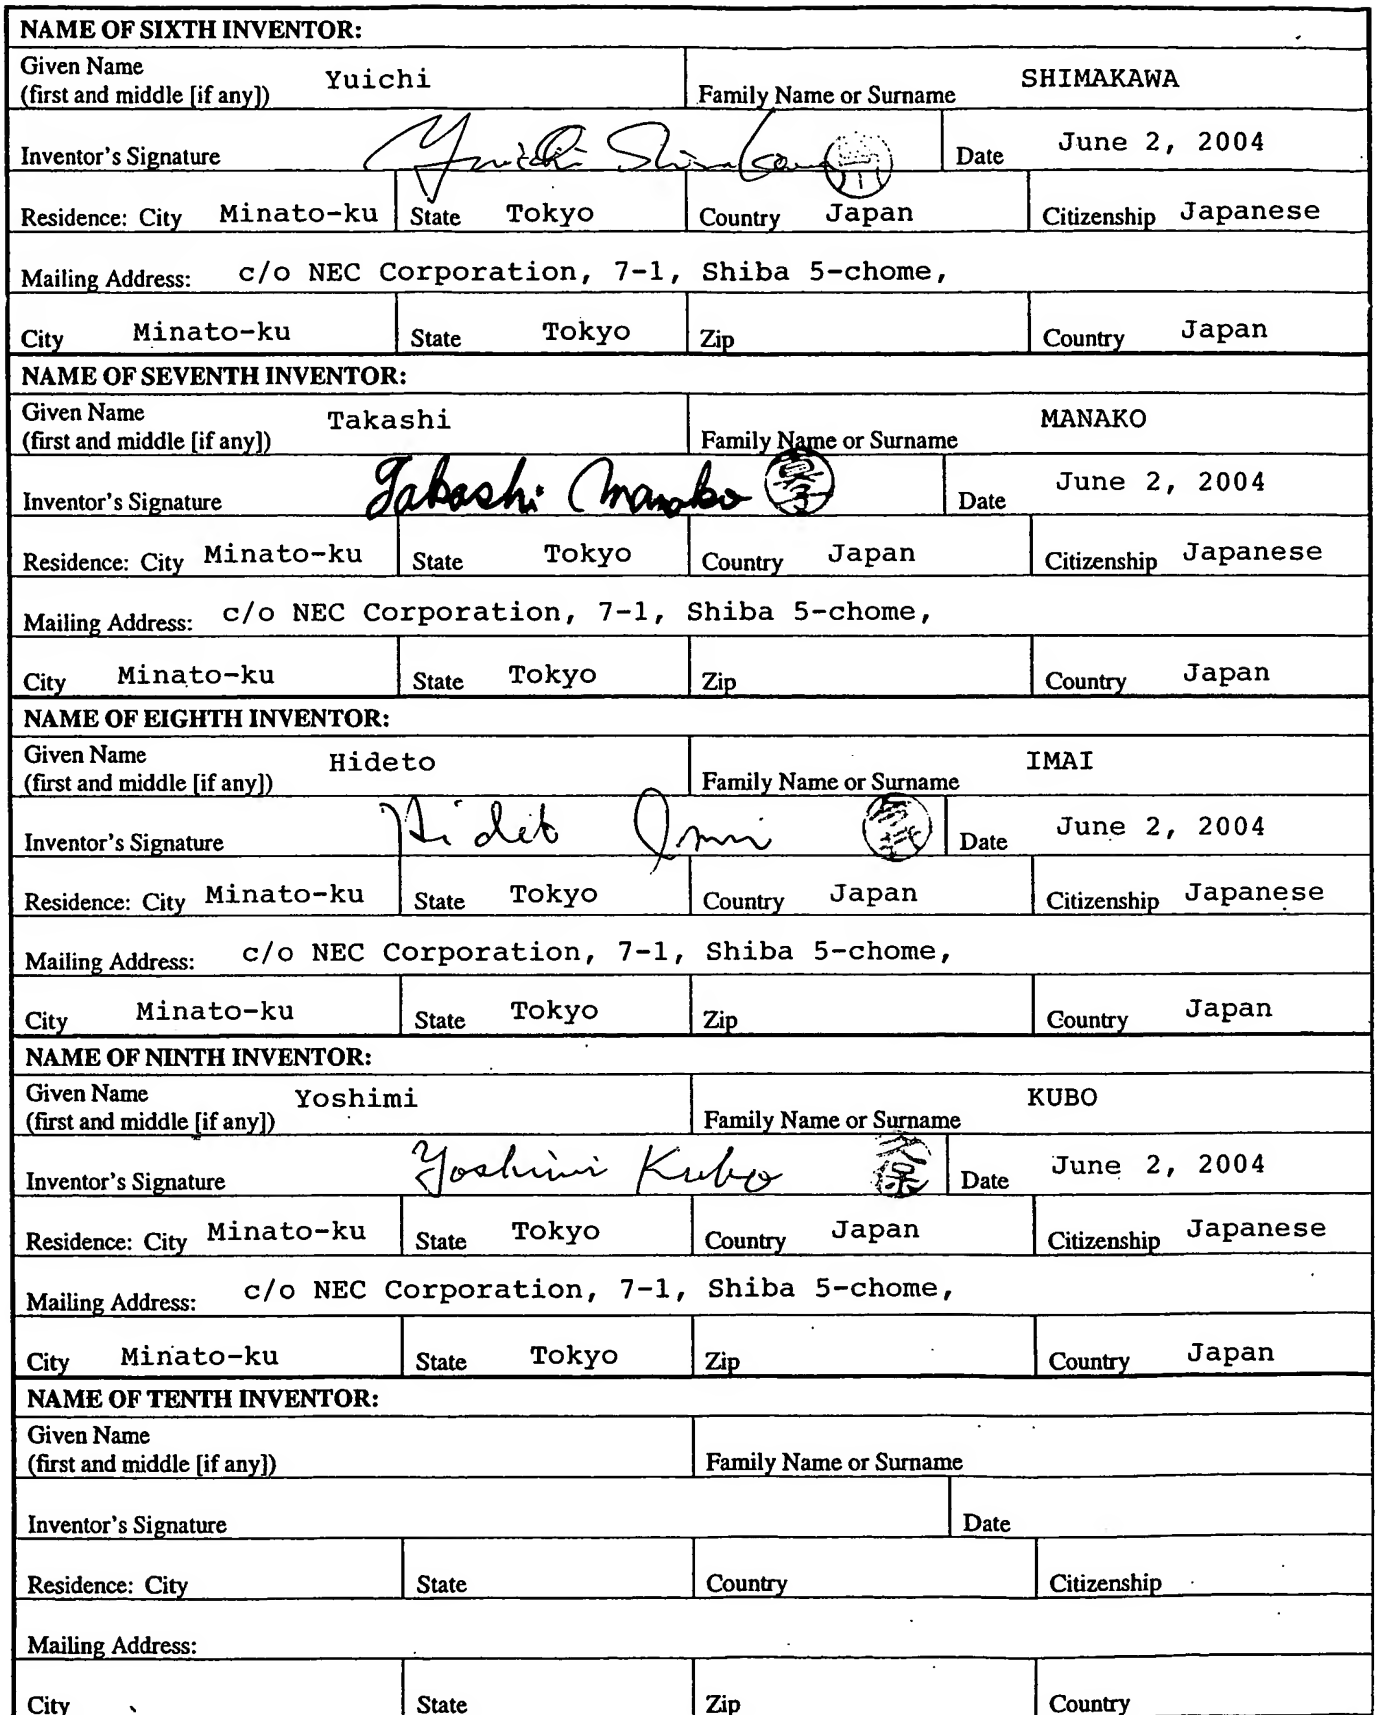 NAME OF SIXTH INVENTOR:
Given Name
(first and middle [if any]) Yuichi Family Name or Surname SHIMAKAWA
Inventor's Signature Yuichi Shimakawa Date June 2, 2004
Residence: City Minato-ku State Tokyo Country Japan Citizenship Japanese
Mailing Address: c/o NEC Corporation, 7-1, Shiba 5-chome,
City Minato-ku State Tokyo Zip Country Japan
NAME OF SEVENTH INVENTOR:
Given Name
(first and middle [if any]) Takashi Family Name or Surname MANAKO
Inventor's Signature Takashi Manako Date June 2, 2004
Residence: City Minato-ku State Tokyo Country Japan Citizenship Japanese
Mailing Address: c/o NEC Corporation, 7-1, Shiba 5-chome,
City Minato-ku State Tokyo Zip Country Japan
NAME OF EIGHTH INVENTOR:
Given Name
(first and middle [if any]) Hideto Family Name or Surname IMAI
Inventor's Signature Hideto Imai Date June 2, 2004
Residence: City Minato-ku State Tokyo Country Japan Citizenship Japanese
Mailing Address: c/o NEC Corporation, 7-1, Shiba 5-chome,
City Minato-ku State Tokyo Zip Country Japan
NAME OF NINTH INVENTOR:
Given Name
(first and middle [if any]) Yoshimi Family Name or Surname KUBO
Inventor's Signature Yoshimi Kubo 久保 Date June 2, 2004
Residence: City Minato-ku State Tokyo Country Japan Citizenship Japanese
Mailing Address: c/o NEC Corporation, 7-1, Shiba 5-chome,
City Minato-ku State Tokyo Zip Country Japan
NAME OF TENTH INVENTOR:
Given Name
(first and middle [if any]) Family Name or Surname
Inventor's Signature Date
Residence: City State Country Citizenship
Mailing Address:
City State Zip Country